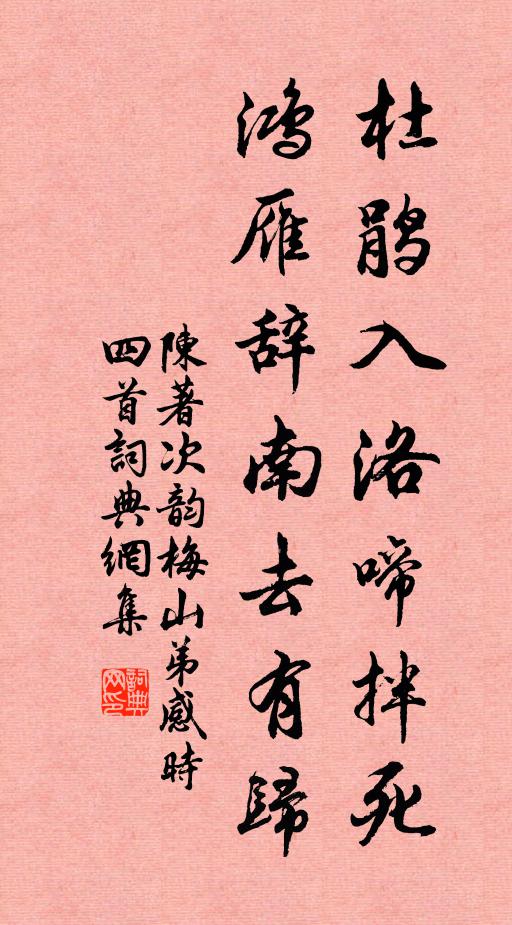 杜鹃入洛啼拌死
鸿雁辞南去有歸
陳著次韵梅山弟感時
四首詞典網集
詞典网印